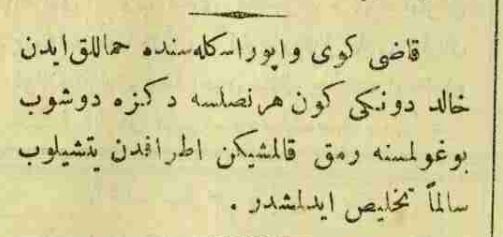 قاضی کوی واپور اسکله‌سنده حماللق ایدن
خالد دونکی کون هر نصلسه دکزه دوشوب
بوغولمسنه رمق قالمشیکن اطرافدن یتشیلوب
سالماً تخلیص ایدلمشدر .